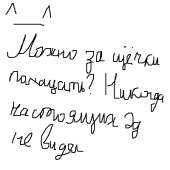 ^_^
Можно за щёчки
потискать? Никогда
настоящих эд
не видел